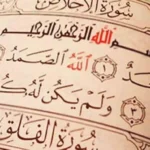 سُورَةُ الإِخْلَاصِ
ـسْمِ ٱللَّهِ ٱلرَّحْمَٰنِ ٱلرَّحِيمِ
۝١ ٱللَّهُ ٱلصَّمَدُ
وَلَمْ يَكُن لَّهُۥ كُـ
۝٣
سُورَةُ الْفَلَقِ